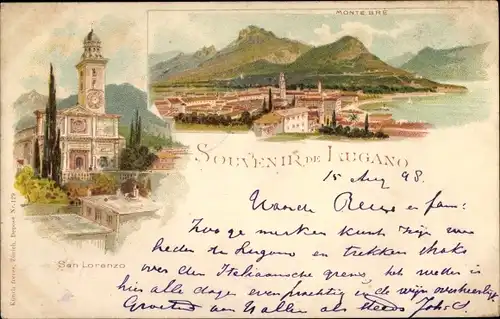 MONTE BRÈ
SOUVENIR DE LUGANO
San Lorenzo
15 Aug 98.
Waarde en fam:
Zoo ge merken kunt zijn we
heden te Lugano en trekken straks
over den Italiaansche grens, het weder is
hier alle dagen even prachtig en de wijn overheerlijk
Groeten aan allen als steeds Joh. S.